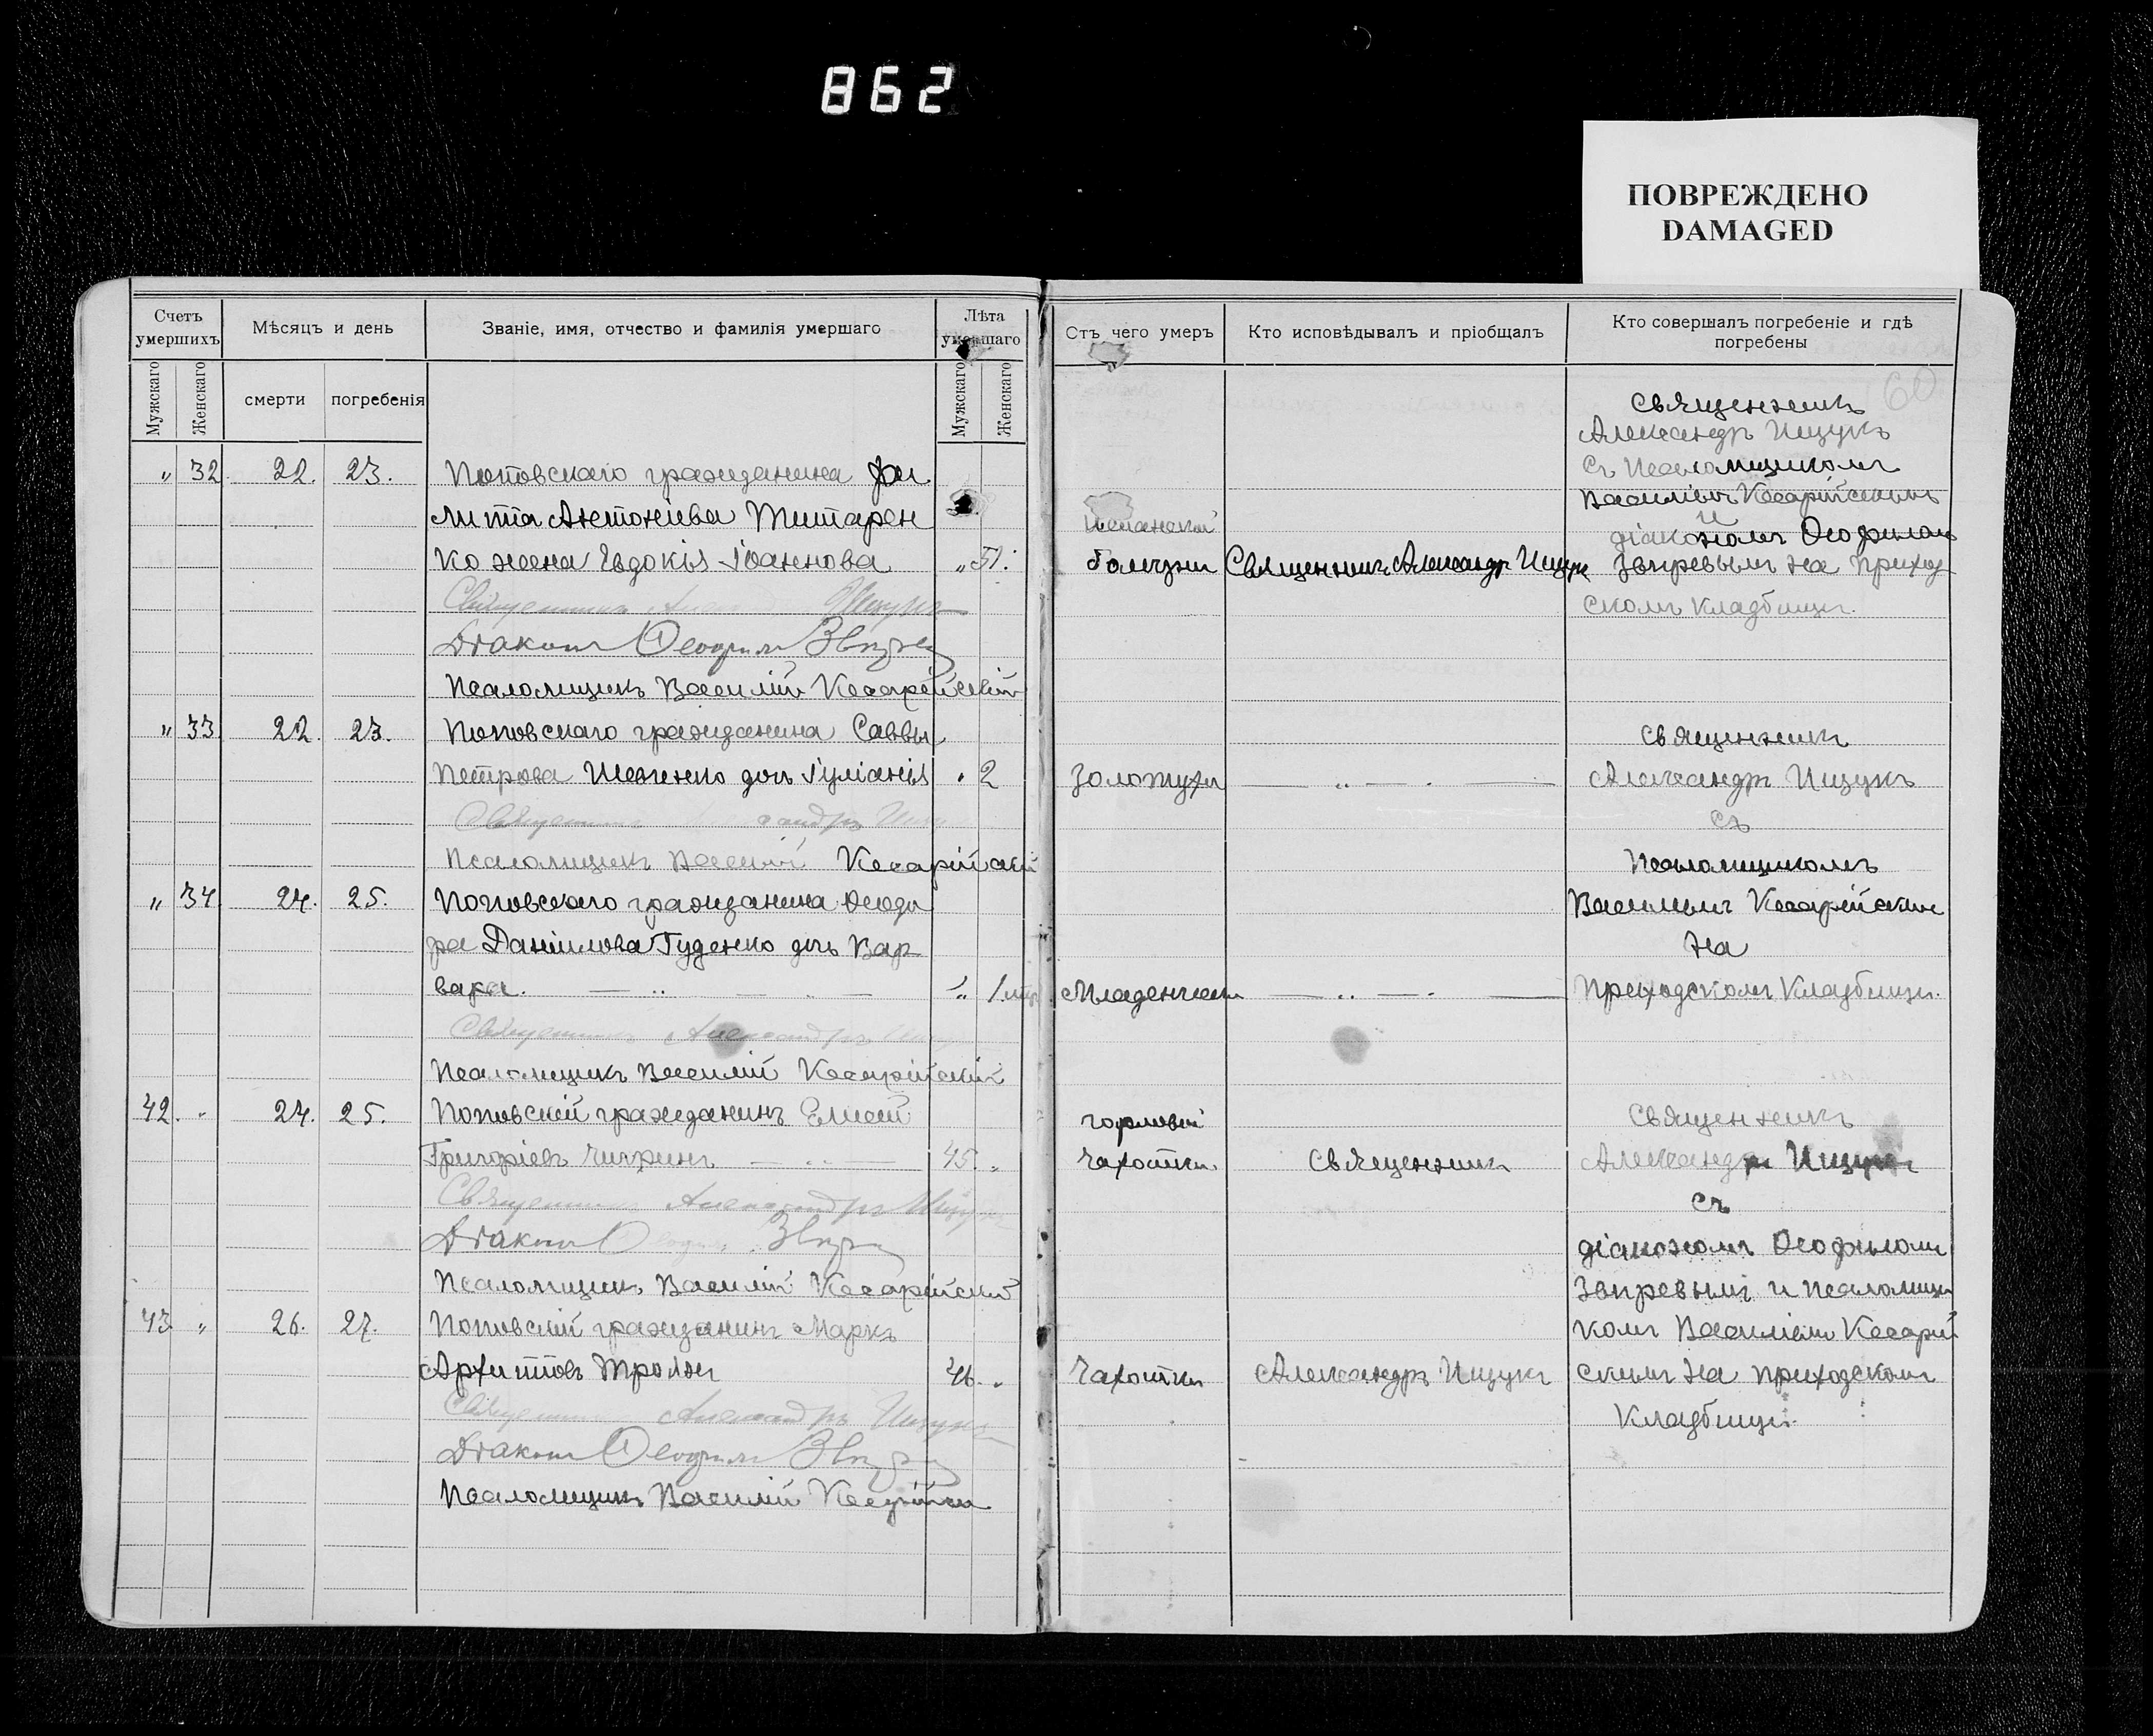 862
ПОВРЕЖДЕНО
DAMAGED
Счетъ умершихъ
Мѣсяцъ и день
Званіе, имя, отчество и фамилія умершаго
Лѣта умершаго
Мужскаго
Женскаго
смерти
погребенія
Мужскаго
Женскаго
" 32. 22. 23. Поповскаго гражданина Фи
липа Антоніева Титарен
ко жена Евдокія Іоаннова " 51.
Священникъ Ищукъ
Діаконъ Ѳеофилъ Звѣревъ
Псаломщикъ Василій Кесарійскій
" 33 22. 23. Поповскаго гражданина Саввы
Петрова дочь Іуліанія " 2
Священникъ
Псаломщикъ Василій Кесарійскій
" 34 24. 25. Поповскаго гражданина Ѳеодо
ра Даніилова Гуденко дочь Вар
вара. " 1
Священникъ Александръ Ищукъ
Псаломщикъ Василій Кесарійскій
42. " 24. 25. Поповскій гражданинъ Елисей
Григоріевъ Чигринъ 45. "
Священникъ Александръ Ищукъ
Діаконъ Звѣревъ
Псаломщикъ Василій Кесарійскій
43 " 26. 27. Поповскій гражданинъ Маркъ
Архиповъ Троянъ 46. "
Священникъ Александръ Ищукъ
Діаконъ Ѳеофилъ Звѣревъ
Псаломщикъ Василій Кесарійскій
Отъ чего умеръ
Кто исповѣдывалъ и пріобщалъ
Кто совершалъ погребеніе и гдѣ погребены
60
Священникъ
Александръ Ищукъ
съ Псаломщикомъ
Василіемъ Кесарійскимъ
и
испанской
діакономъ Ѳеофиломъ
болѣзни Священникъ Александръ Ищукъ Звѣревымъ на приход
скомъ кладбищѣ.
Священникъ
золотухи Александръ Ищукъ
съ
Псаломщикомъ
Василіемъ Кесарійскимъ
на
Младенческ приходскомъ кладбищѣ.
горловой Священникъ
чахотки. Священникъ Александръ Ищукъ
съ
діакономъ Ѳеофиломъ
Звѣревымъ и псаломщи
комъ Василіемъ Кесарій
чахотки Александръ Ищукъ скимъ на приходскомъ
кладбищѣ.